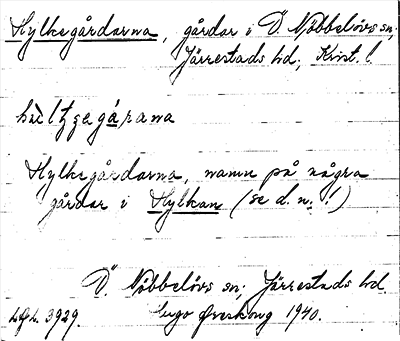 Hylkegårdarna, gårdar i Ö. Nöbbelövs sn;
Järrestads hd; Krist. l.
Hylkegårdarna, namn på några
gårdar i Hylkan (se d. n.!)
Ö. Nöbbelövs sn; Järrestads hd.
3929. Överking 1940.